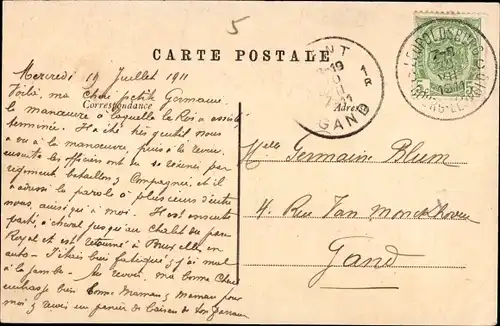 5
CARTE POSTALE
Correspondance
Adresse
GENT
GAND
LEOPOLDSBURG
BOURG-LÉOPOLD
Mercredi 19 Juillet 1911
Voilà, ma Chère petite Germaine
la manœuvre à laquelle le Roi a assisté
terminée. Il a été très gentil nous
a vu à la manœuvre, puis à la revue,
ensuite les officiers ont su se réunir par
régiment bataillon & Compagnie, et il
a adressé la parole à plusieurs d'entre
nous, ainsi qu'à moi. Il est ensuite
parti, à cheval jusqu'au Chalet du parc
Royal et est retourné à Bruxelles en
auto – J'étais bien fatigué & j'ai mal
à la jambe – Au revoir, ma bonne Chère
embrasse bien bonne Maman & Maman pour
moi & reçois un panier de baisers de ton
Melle Germaine Blum
4. Rue Van Monckhoven
Gand